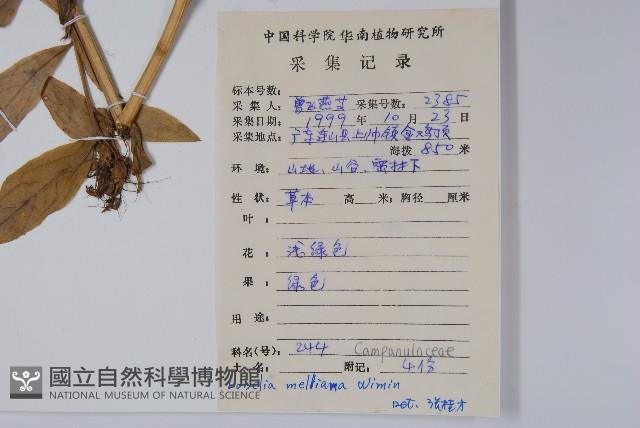 中国科学院华南植物研究所
采集记录
标本号数:
采集人: 曾飞燕等 采集号数: 2385
采集日期: 1999 年 10 月 23 日
采集地点: 广东连山县上帅镇
海拨 850 米
环境: 山坡、山谷、密林下
性状: 草本 高 米; 胸径 厘米
叶:
花: 浅绿色
果: 绿色
用途:
科名(号): 244 Campanulaceae
土名: 附记: 4份
Lobelia melliana Wimin
Det. 张桂才
國立自然科學博物館
NATIONAL MUSEUM OF NATURAL SCIENCE